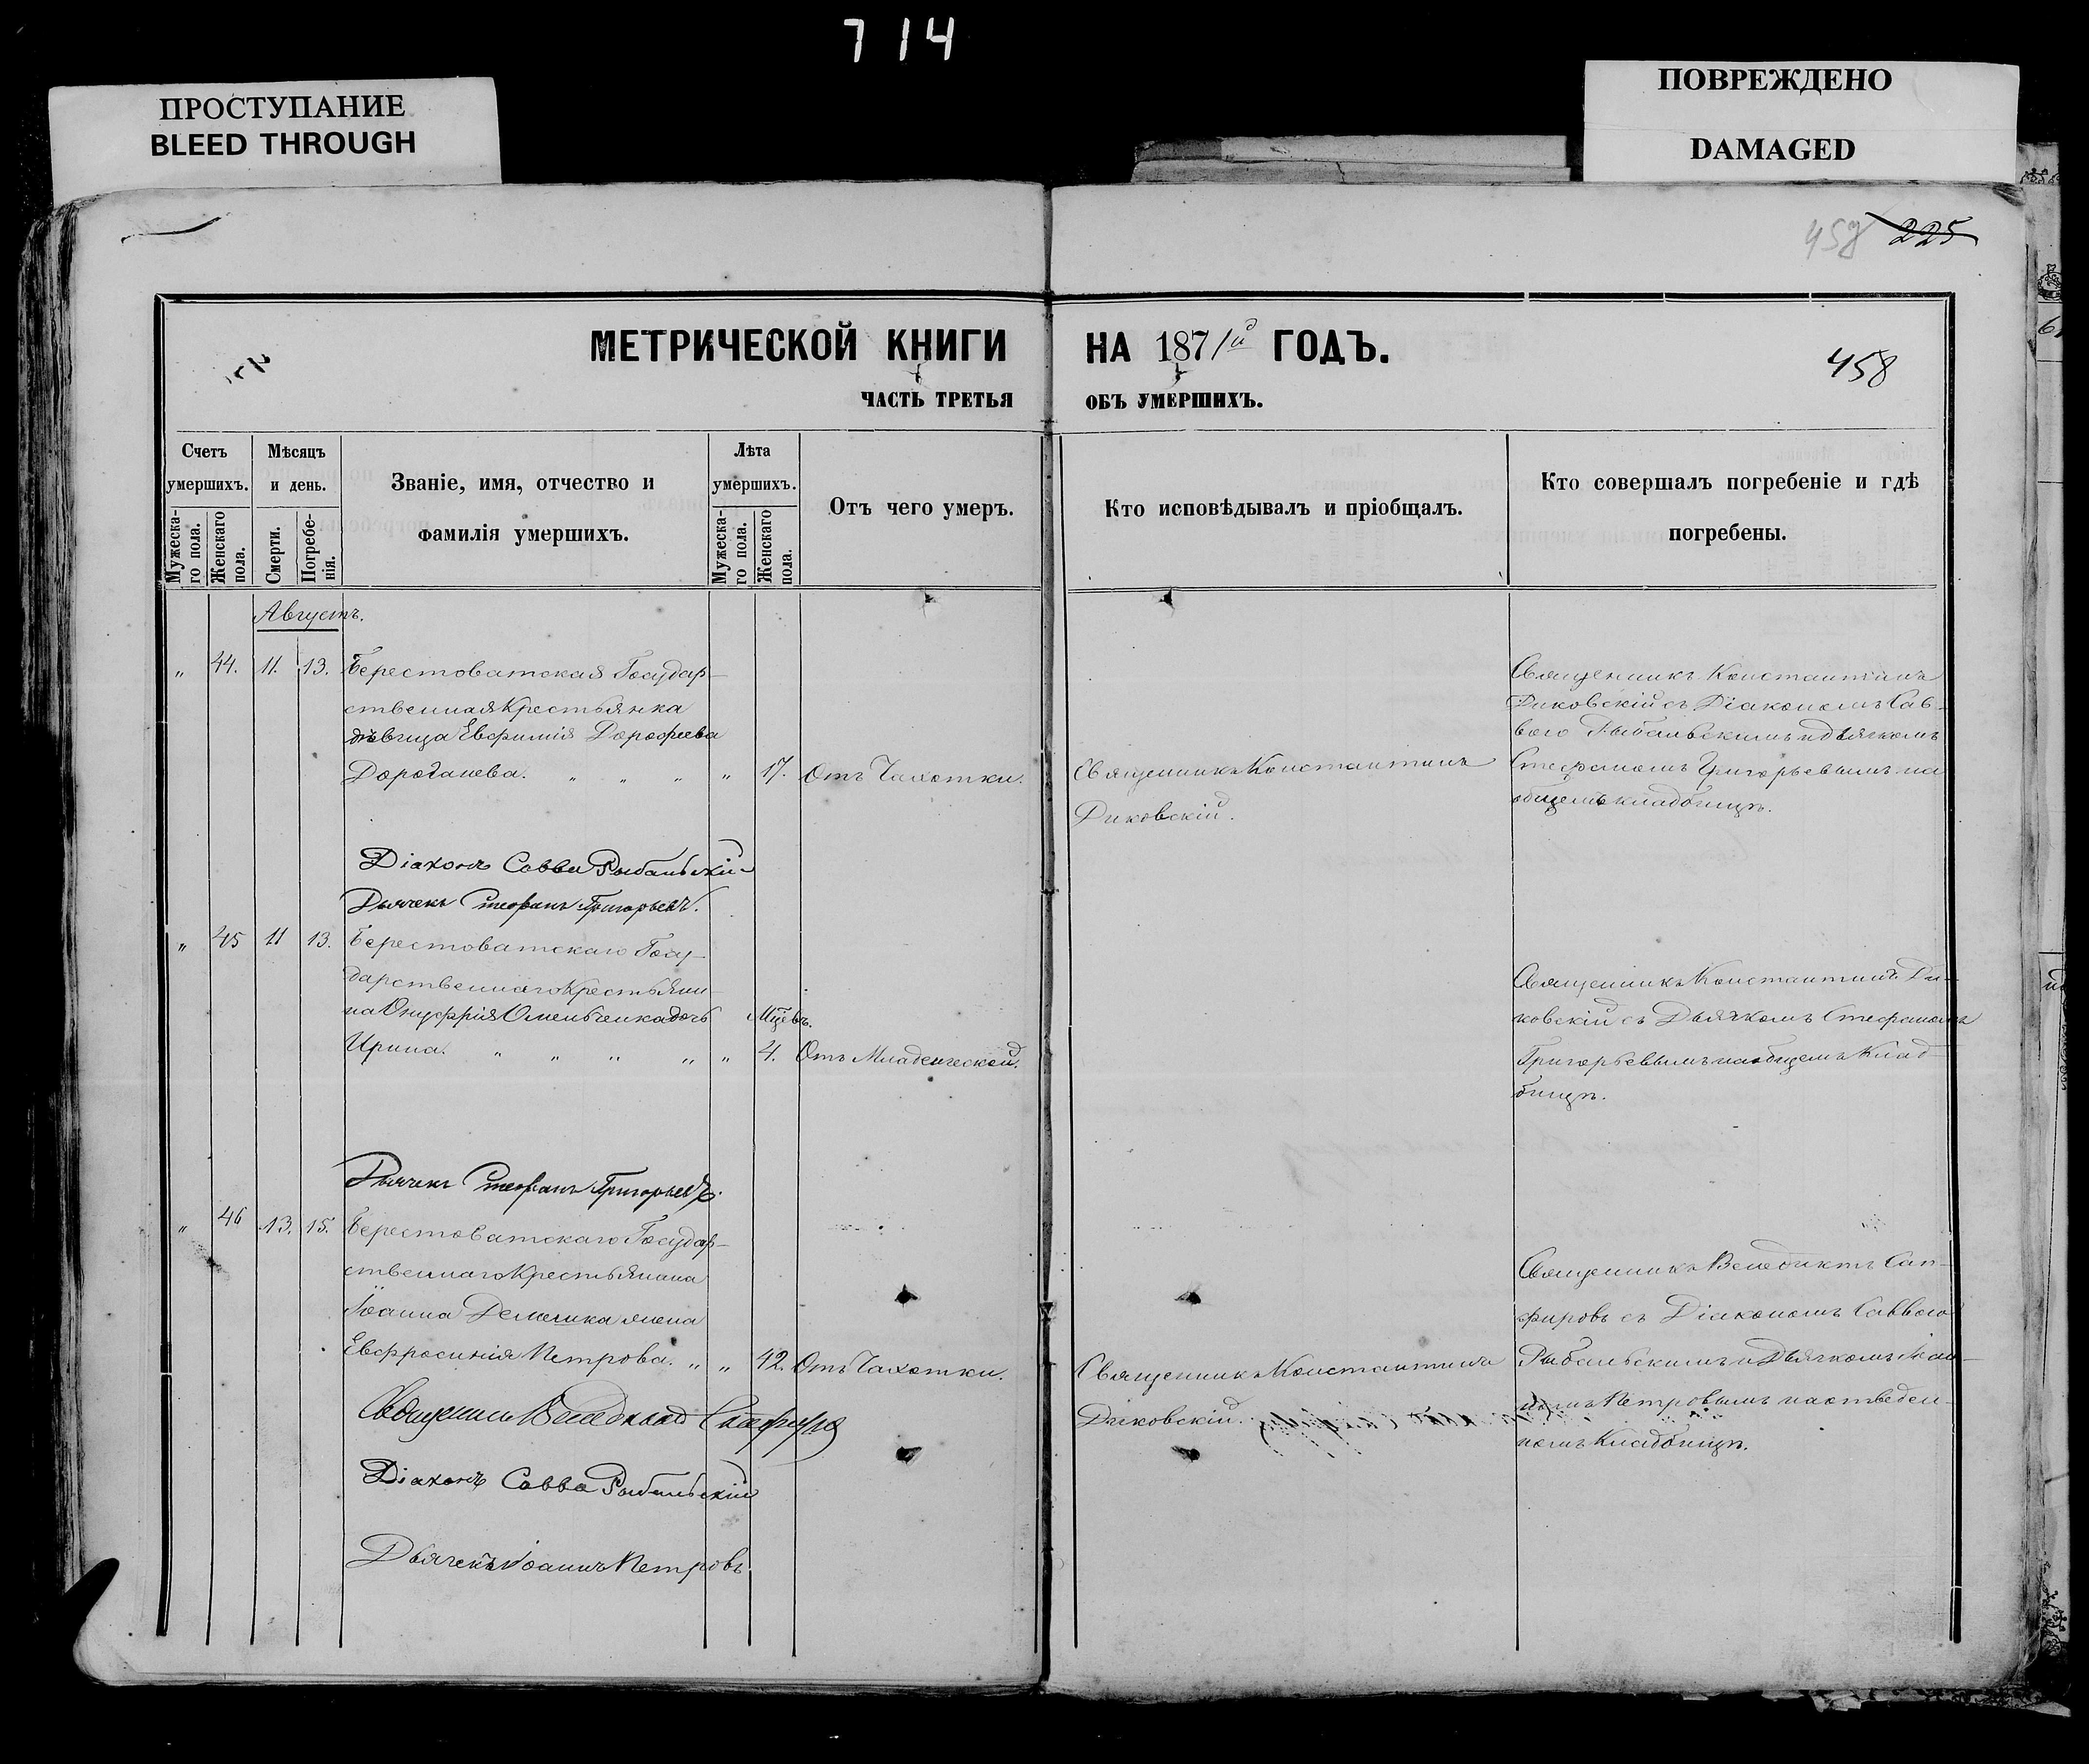 714
ПРОСТУПАНИЕ
BLEED THROUGH
ПОВРЕЖДЕНО
DAMAGED
458 225
МЕТРИЧЕСКОЙ КНИГИ НА 1871й ГОДЪ.
458
ЧАСТЬ ТРЕТЬЯ ОБЪ УМЕРШИХЪ.
Счетъ умершихъ.
Мужеска-
го пола.
Женскаго
пола.
Мѣсяцъ
и день.
Смерти.
Погребе-
нія.
Званіе, имя, отчество и
фамилія умершихъ.
Лѣта
умершихъ.
Мужеска-
го пола.
Женскаго
пола.
Отъ чего умеръ.
Кто исповѣдывалъ и пріобщалъ.
Кто совершалъ погребеніе и гдѣ
погребены.
Августъ.
„ 44. 11. 13. Берестоватская Государ-
ственная Крестьянка
дѣвица Евфимія Дорофеева
„ „ „ „ 17. Отъ Чахотки.
Священникъ Константинъ
Диковскій.
Священникъ Константинъ
Диковскій съ Діакономъ Сав-
вою Рыбальскимъ и дьячкомъ
Стефаномъ Григорьевымъ на
общемъ кладбищѣ.
Діаконъ Савва Рыбальскій
Дьячекъ Стефанъ Григорьевъ.
„ 45 11 13. Берестоватскаго Госу-
дарственнаго Крестьяни-
на Онуфрія Омельченка дочь
Мцевъ.
Ирина. „ „ „ „ „ 4. Отъ Младенческой.
Священникъ Константинъ Ди-
ковскій съ Дьячкомъ Стефаномъ
Григорьевымъ на общемъ Клад-
бищѣ.
Дьячекъ Стефанъ Григорьевъ.
„ 46 13. 15. Берестоватскаго Государ-
ственнаго Крестьянина
Іоанна жена
Евфросинія Петрова. „ „ 42. Отъ Чахотки.
Священникъ Константинъ
Диковскій.
Священникъ Венедиктъ Сап-
фировъ съ Діакономъ Саввою
Рыбальскимъ и Дьячкомъ Іоан-
номъ Петровымъ на отведен-
номъ Кладбищѣ.
Священникъ Венедиктъ Сапфировъ
Діаконъ Савва Рыбальскій
Дьячекъ Іоаннъ Петровъ.